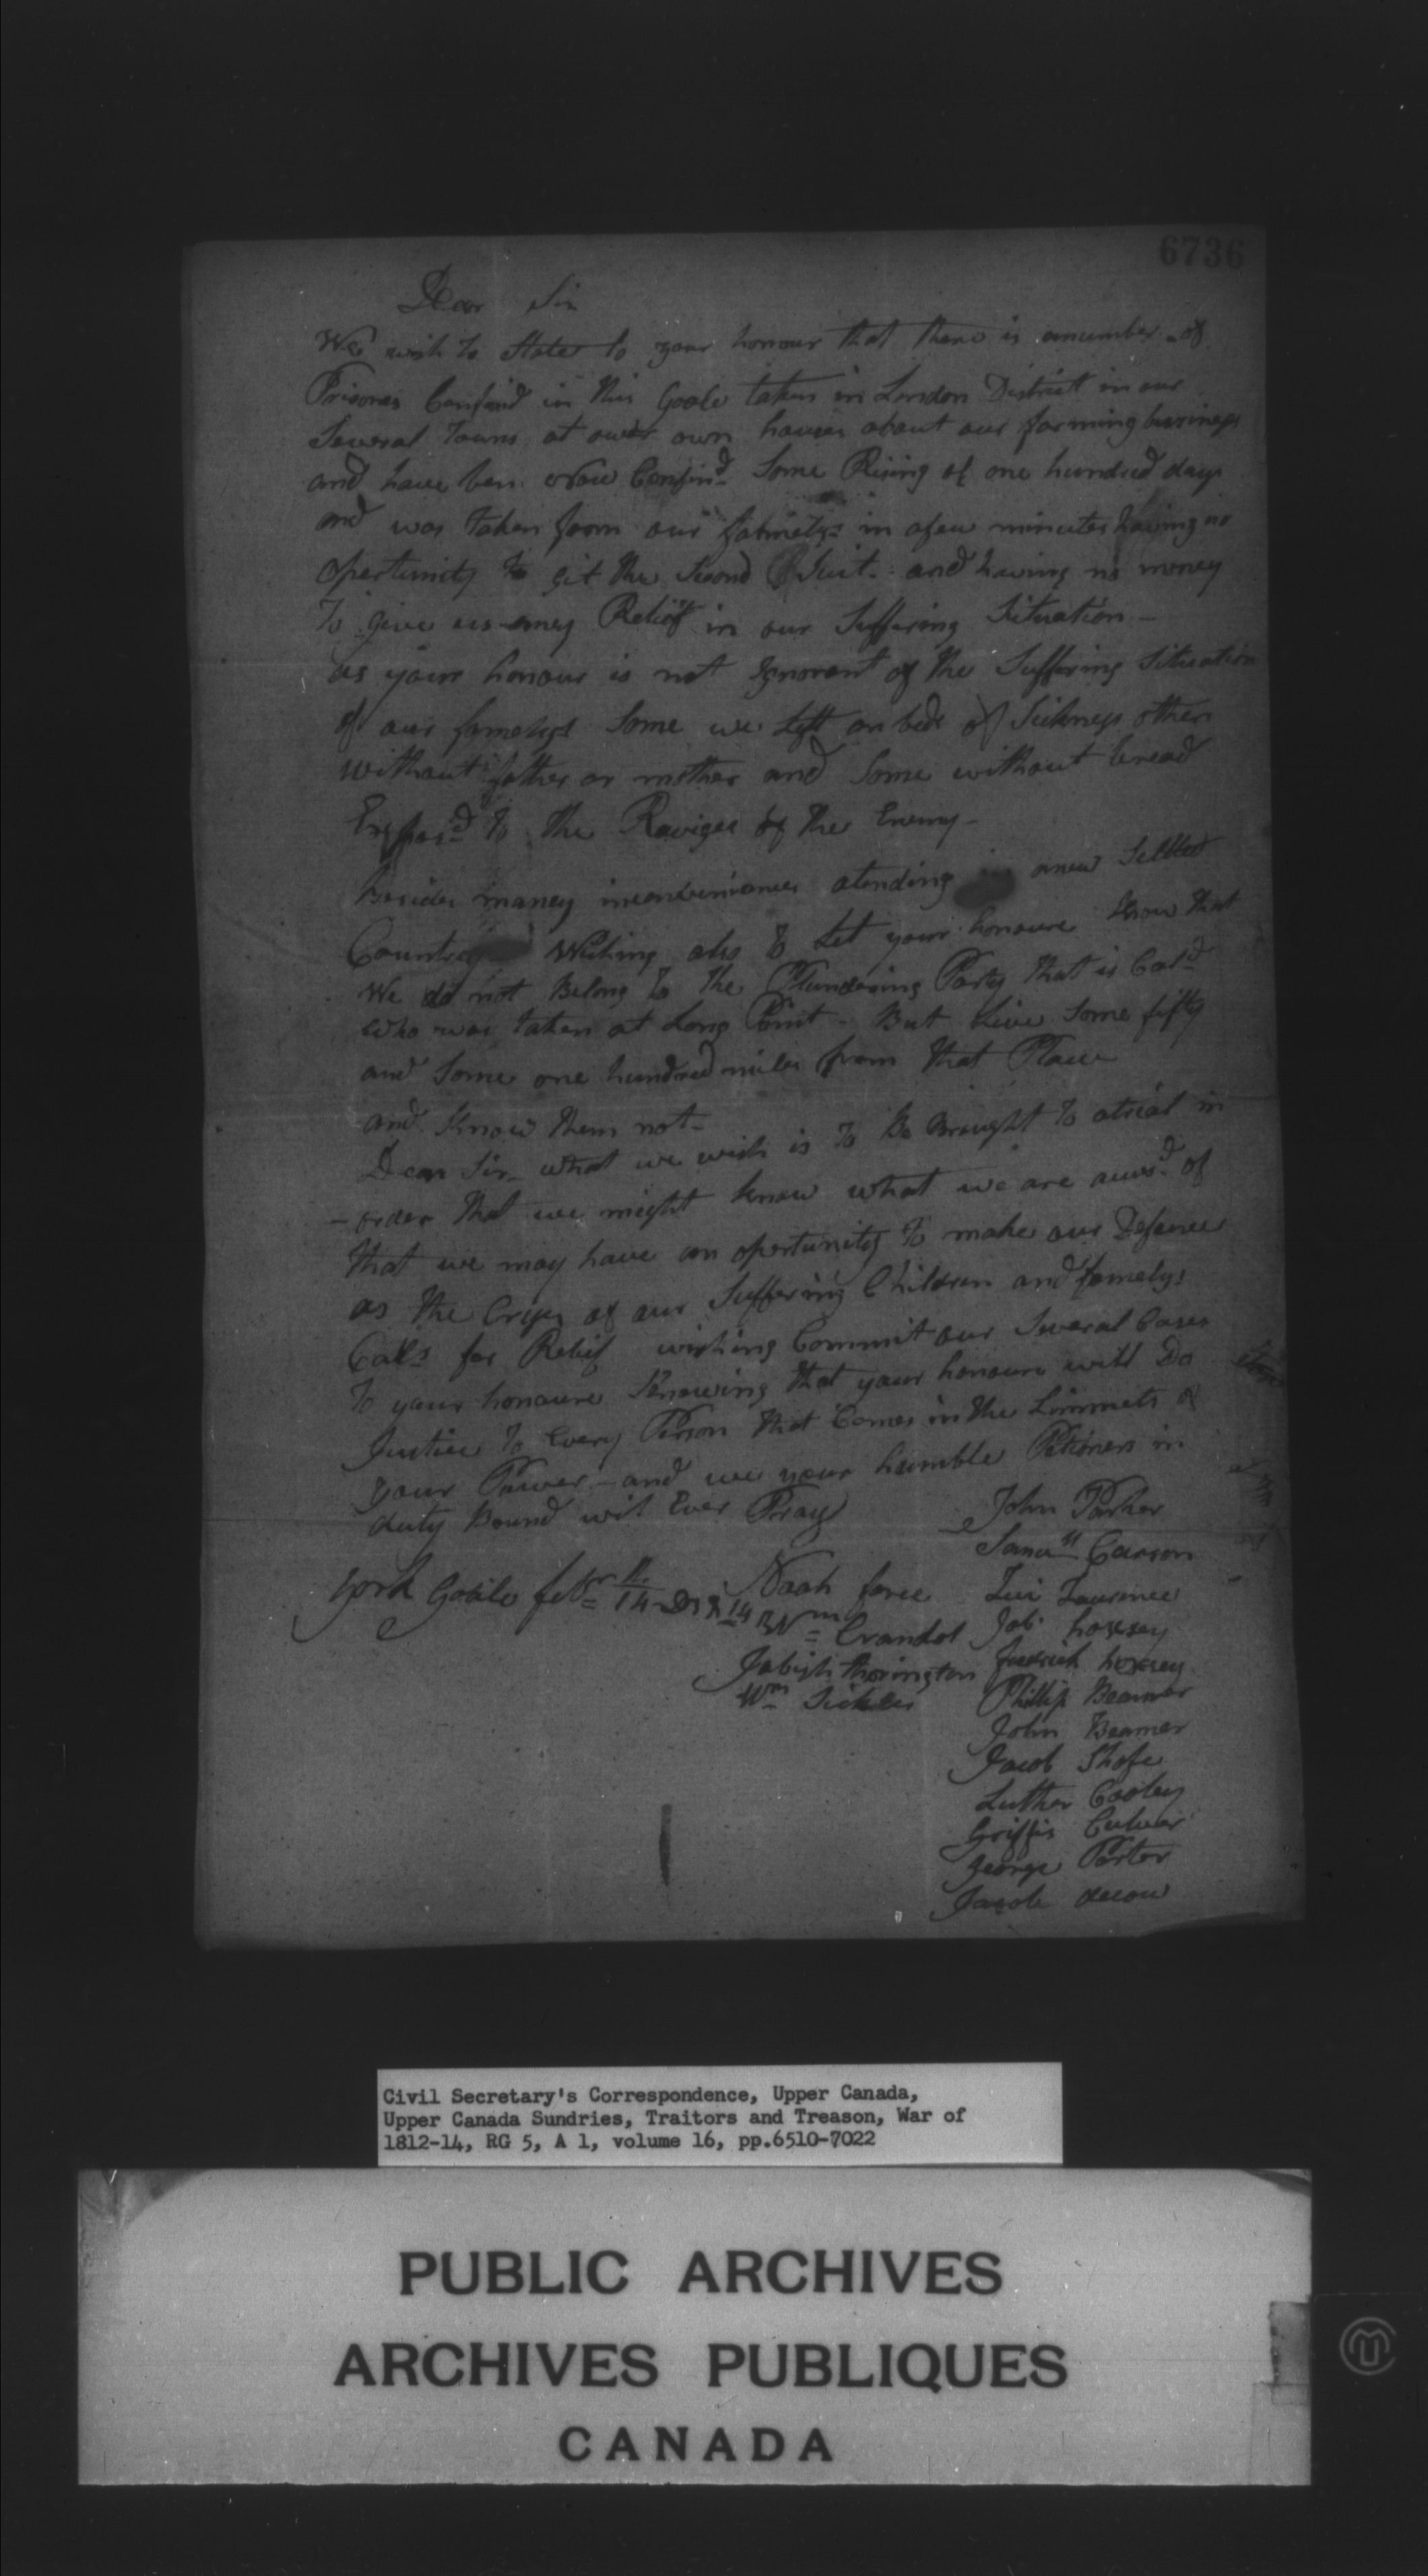 6736
Dear Sir
We wish to State to your honour that there is anumber of
Prisoners Confind in this Goale taken in London District in our
Several Towns at our own houses about our farming business
and have ben now Confin'd Some Rising of one hundred days
and was taken from our famelys in afew minutes having no
opertunity to git the Second Suit and having no money
To give us aney Relief in our Suffering Situation —
as your honour is not Ignorant of the Suffering Situation
of our famelys Some we Left on beds of Sickness others
without father or mother and Some without bread
Exposd to the Raviges of the Enemy —
Besides maney inconveniances atending anew Settled
Country Wishing also to Let your honoure know that
We do not Belong to the Plundering Party that is Cald
who was taken at Long Point - But Live Some fifty
and Some one hundred miles from that Place
and know them not -
Dear Sir what we wish is to Be Braught to atrial in
- order that we might know what we are acus'd of
that we may have an opertunity to make our Defence
as the Cryes of our Suffering Children and famelys
Calls for Relief wishing Commit our Several Cases
To your honoure Knowing that your honoure will Do
Justice to Every Person that Comes in the Limmets of
your Power - and we your humble Petioners in
duty Bound wil Ever Pray
John Parker
Samull Carson
York Goale febr 14
Noah force
Levi Lawrence
Wm Crandol
Job hoxsey
Jabish thorington
fredrick hoxsey
Wm Sickles
Phillip Beamer
John Beamer
Jacob Shofe
Luther Cooley
Griffis Culver
George Porter
Jacob decow
Civil Secretary's Correspondence, Upper Canada,
Upper Canada Sundries, Traitors and Treason, War of
1812-14, RG 5, A 1, volume 16, pp.6510-7022
PUBLIC ARCHIVES
ARCHIVES PUBLIQUES
CANADA